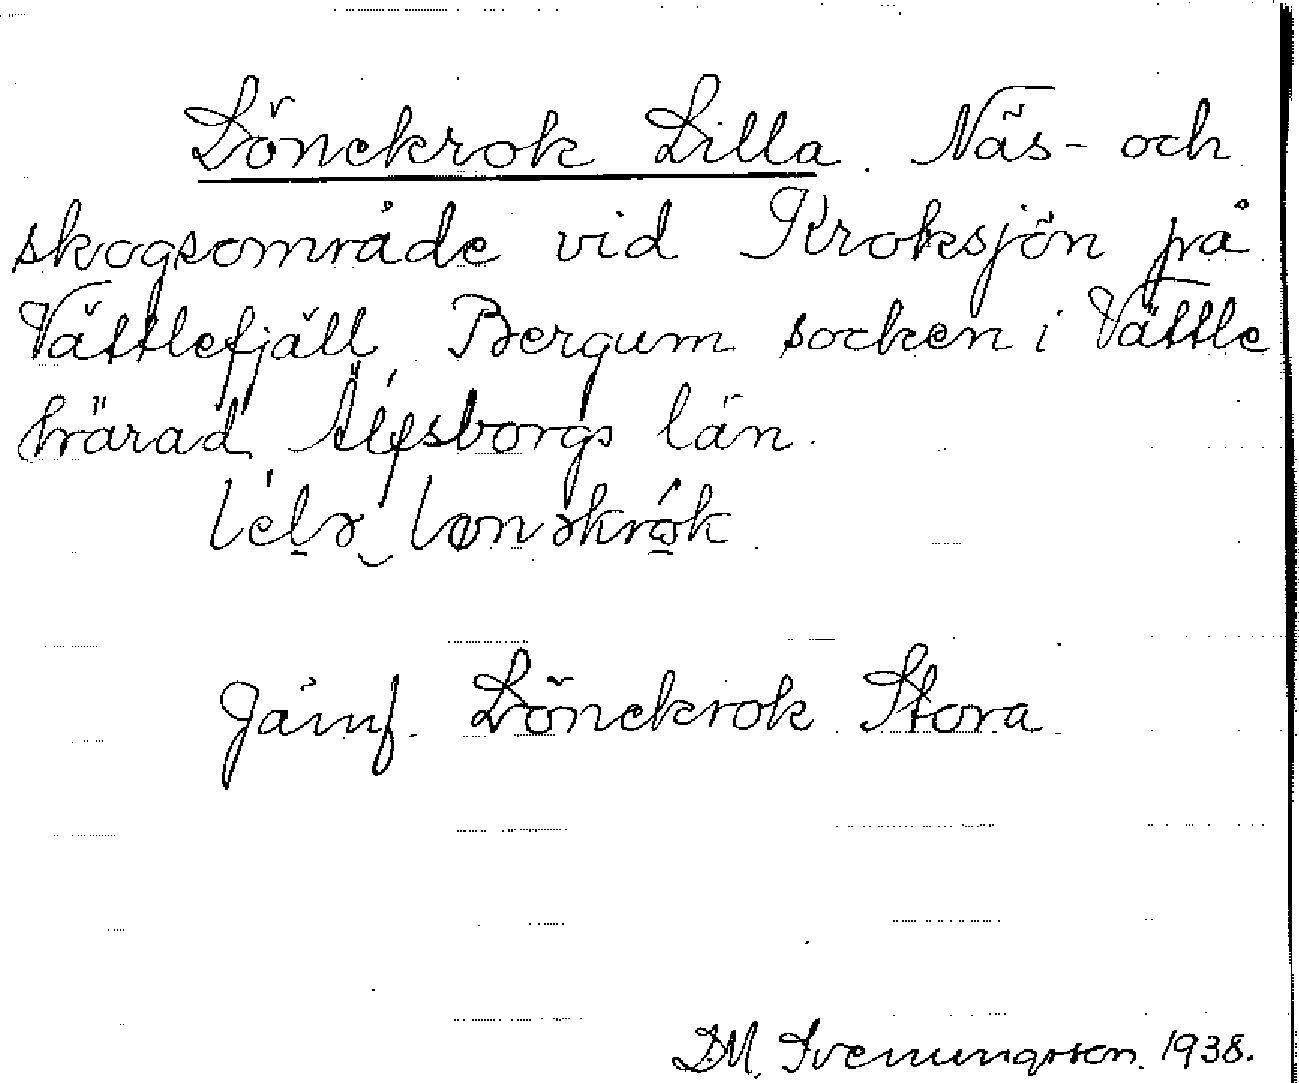 Lönekrok Lilla. Näs- och
skogsområde vid Kroksjön på
Vättlefjäll Bergum socken i Vättle
härad Älfsborgs län.
Jämf. Lönekrok Stora
DM. Svenungsson. 1938.